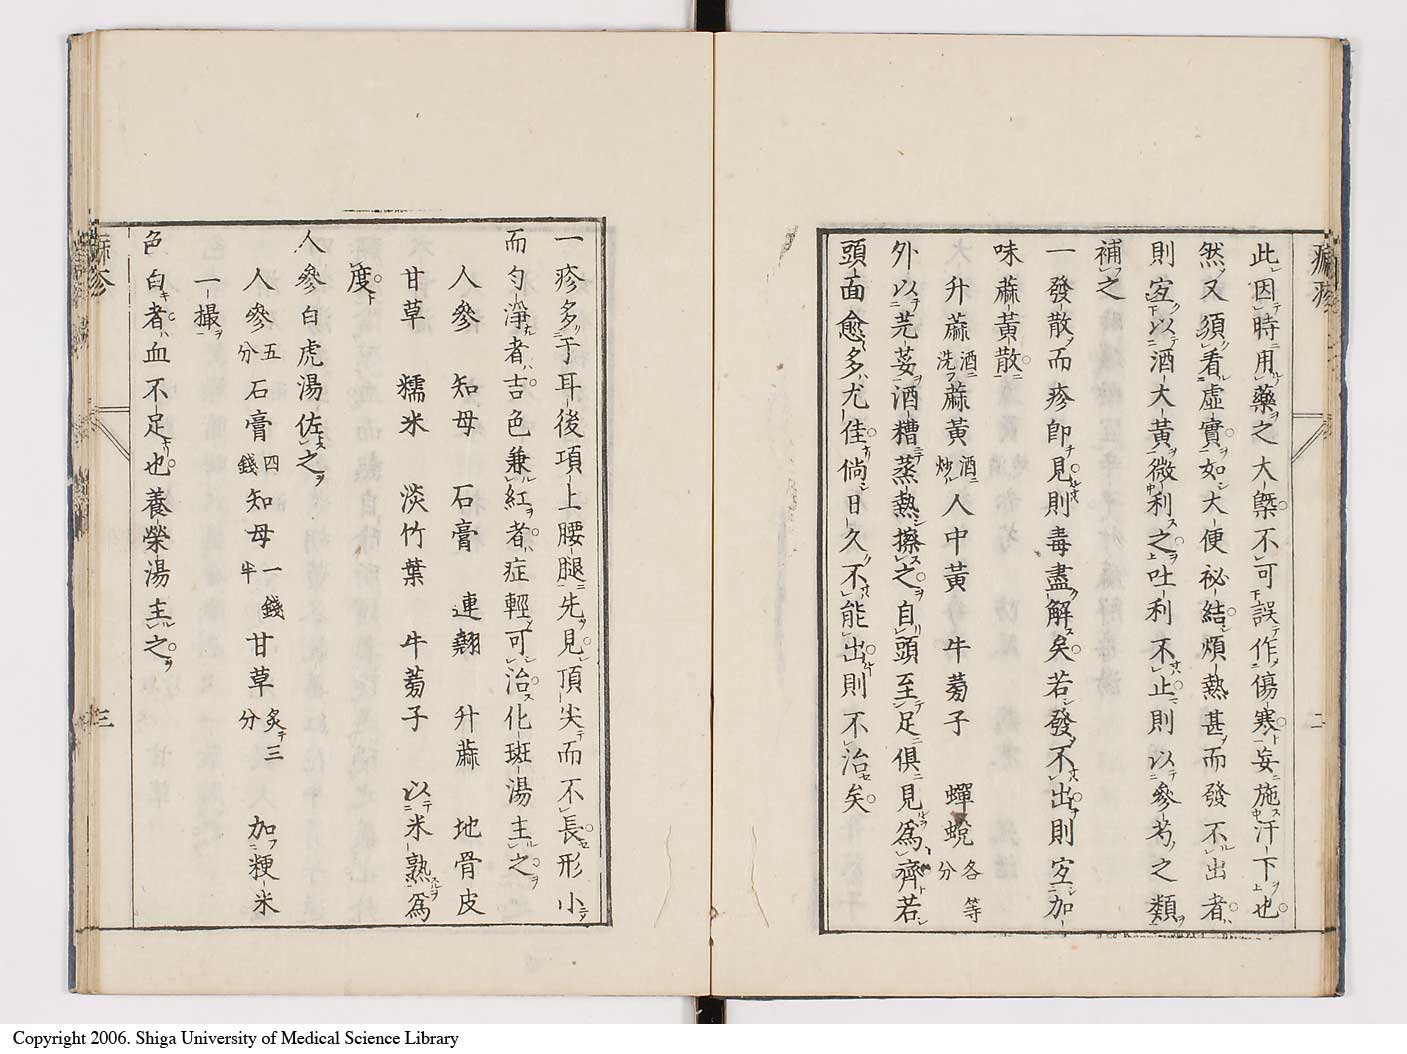 此因時用藥之大槩不可誤作傷寒妄施汗下也
然又須看虛實如大便祕結煩熱甚而發不出者
則宜以酒大黃微利之吐利不止則以參芍之類
補之
一發散而疹卽見則毒盡解矣若發不出則宜加
味蔴黃散
升蔴酒洗蔴黃酒炒人中黃 牛蒡子 蟬蛻各等分
外以芫荽酒糟蒸熱擦之自頭至足俱見為齊若
頭面愈多尤佳倘日久不能出則不治矣
二
一疹多于耳後項上腰腿先見頂尖而不長形小
而勻淨者吉色兼紅者症輕可治化斑湯主之
人參 知母 石膏 連翹 升蔴 地骨皮
甘草 糯米 淡竹葉 牛蒡子 以米熟為
度
人參白虎湯佐之
人參五分石膏四錢知母一錢半甘草炙三分 加粳米
一撮
色白者血不足也養榮湯主之
麻疹
三
Copyright 2006. Shiga University of Medical Science Library